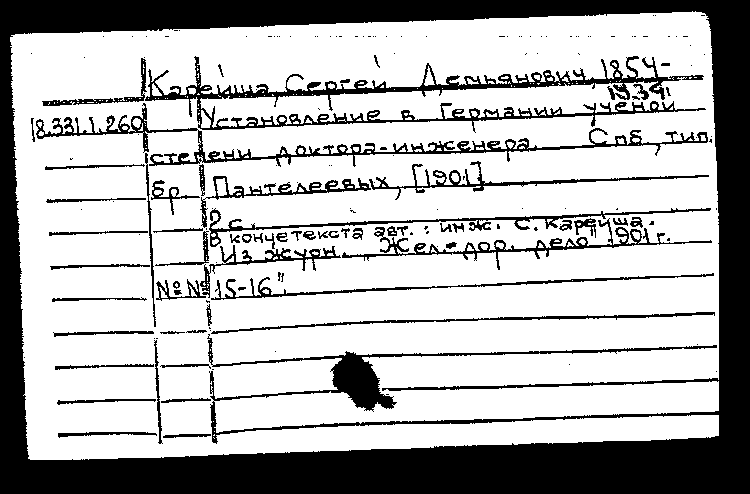 Карейша, Сергей Демьянович, 1854-
1934
18.331.1.260 Установление в Германии ученой
степени доктора-инженера. Спб, тип.
бр Пантелеевых, [1901].
2 с.
В конце текста авт.: инж. С. Карейша.
"Из журн. "Жел.-дор. дело" 1901 г.
№№ 15-16".